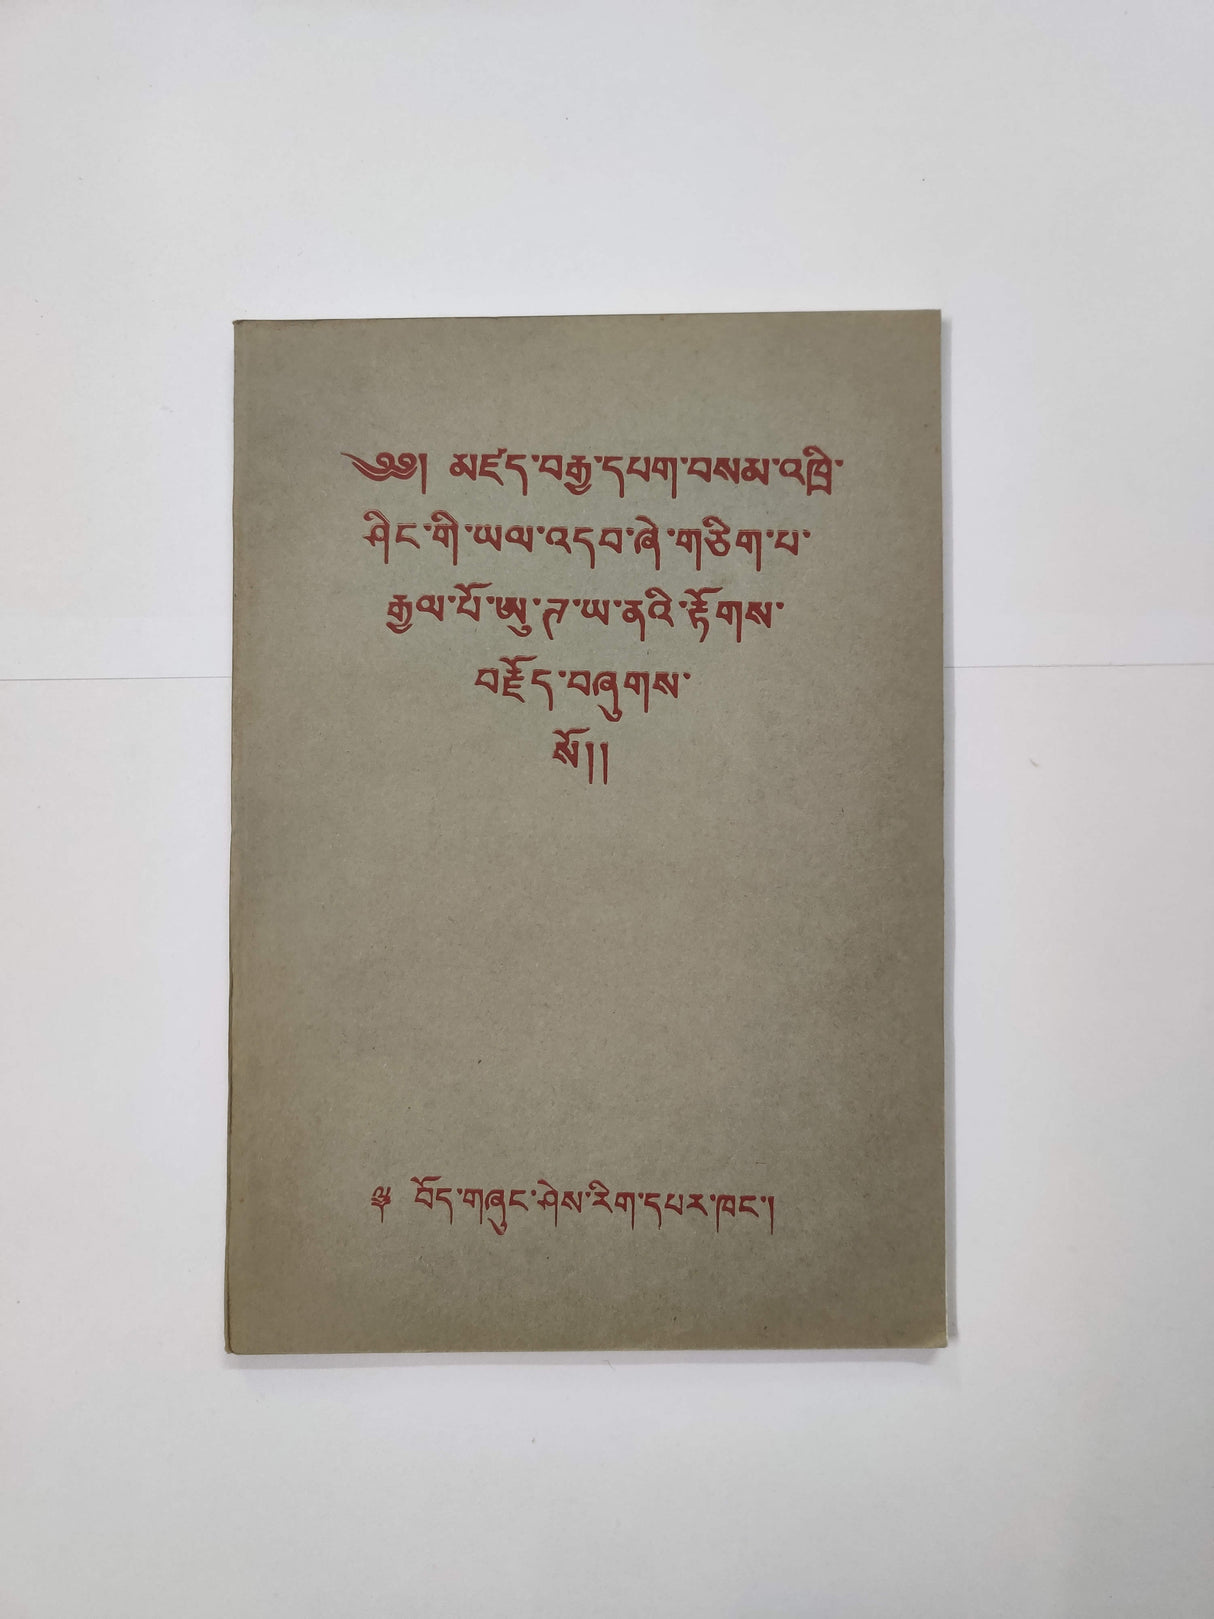 ༄༅། མཛད་བརྒྱ་དཔག་བསམ་འཁྲི་
ཤིང་གི་ཡལ་འདབ་ཞེ་གཅིག་པ་
རྒྱལ་པོ་ཨུ་ཏྲ་ཡ་ནའི་རྟོགས་
བརྗོད་བཞུགས་
སོ།།
༈ བོད་གཞུང་ཤེས་རིག་དཔར་ཁང་།